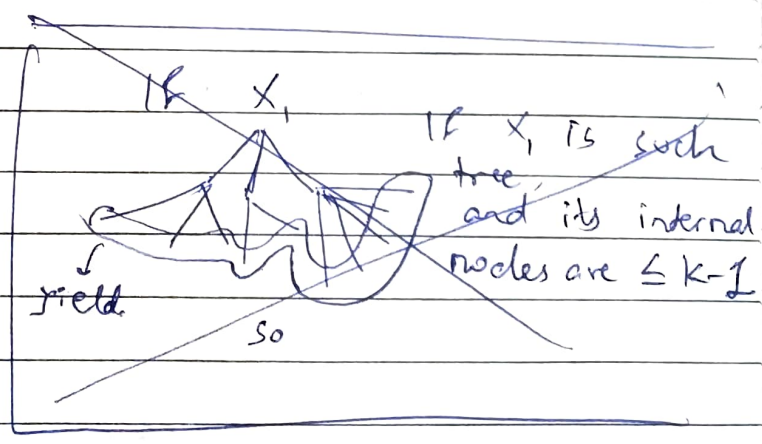 If X₁
If X₁ is such
tree,
and its internal
nodes are ≤ k-1
yield
so